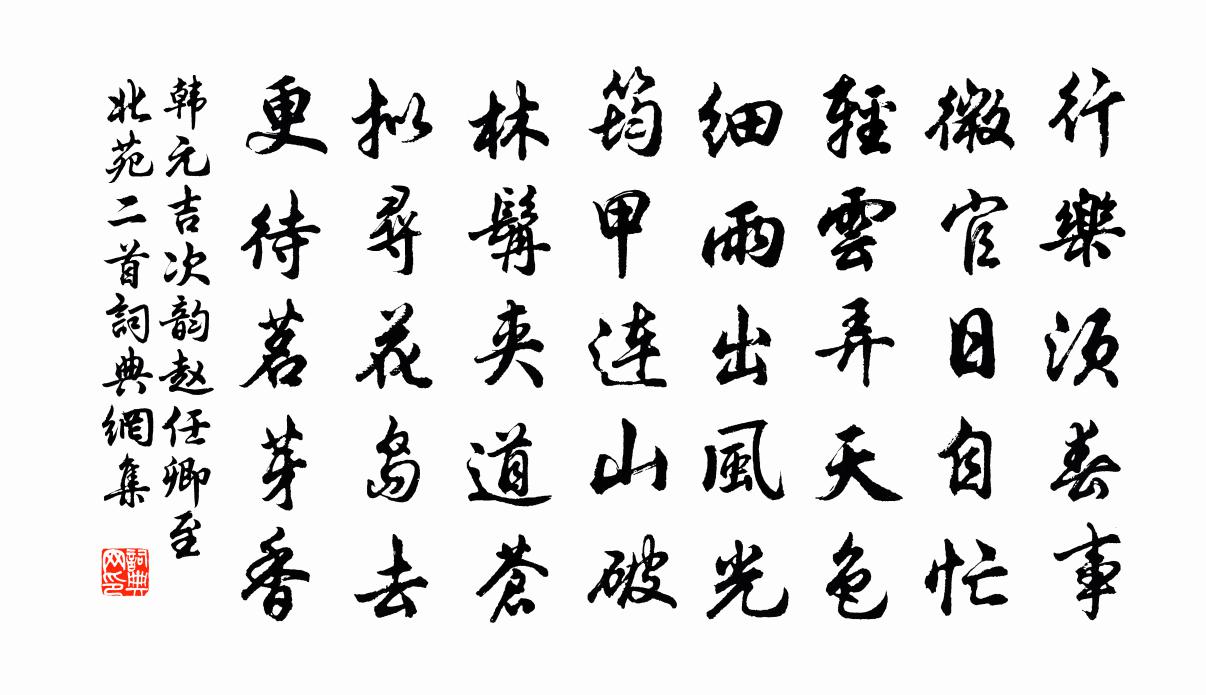 行樂須春事
微官日自忙
輕雲弄天色
細雨出風光
筠甲連山破
林髯夾道蒼
拟尋花島去
更待茗芽香
韩元吉次韵赵任卿至
北苑二首詞典網集
詞典
网印